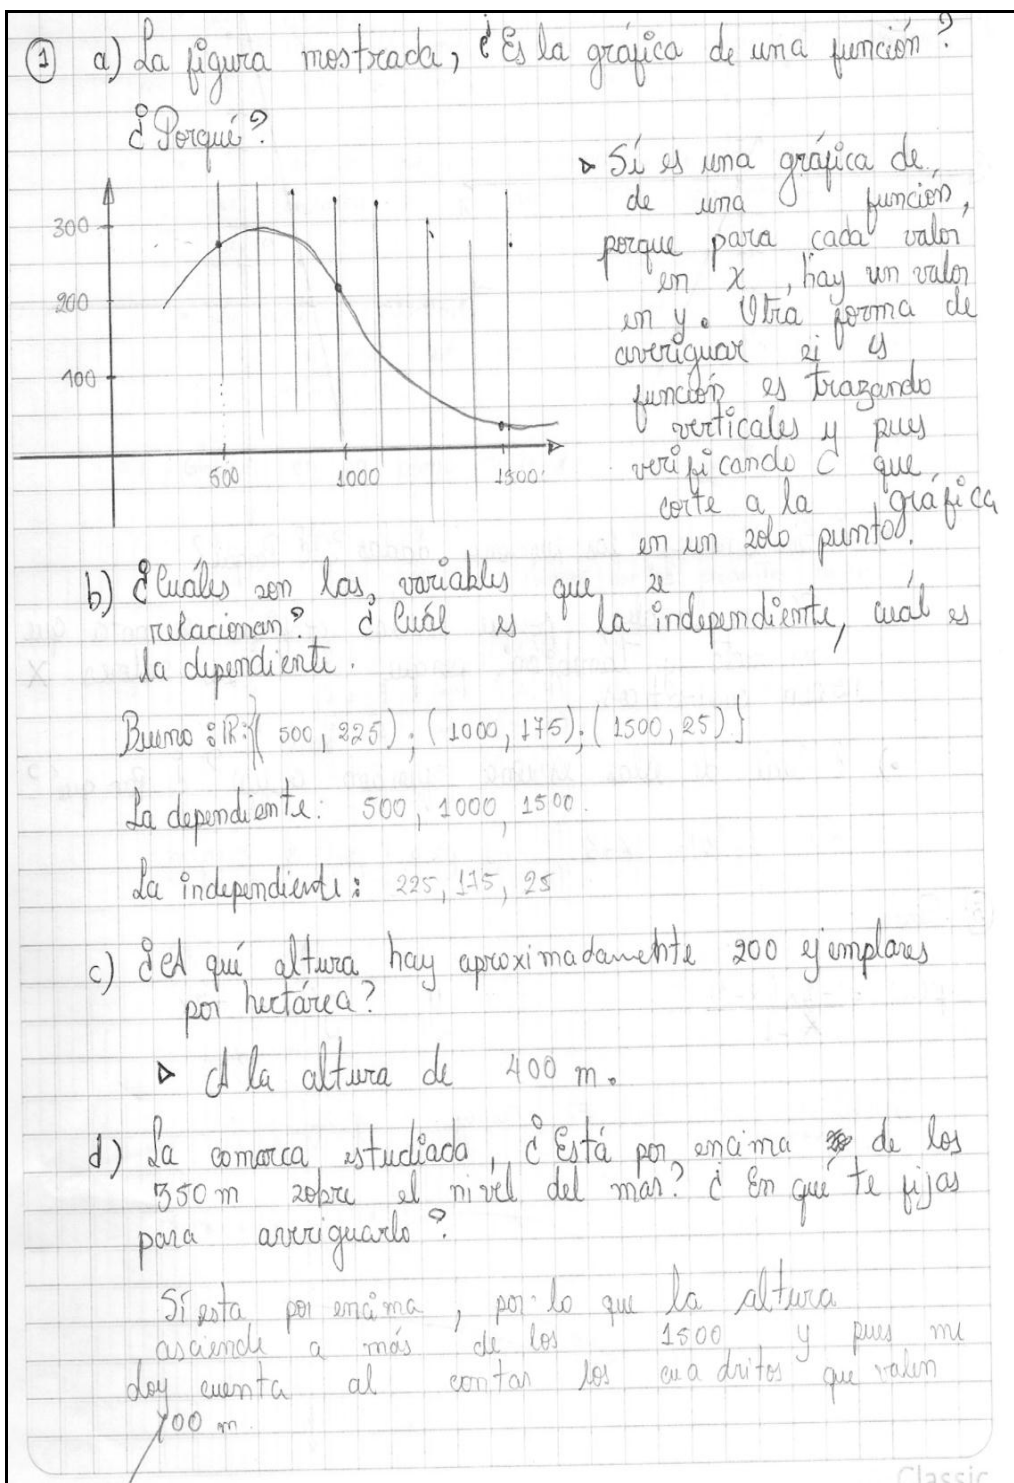 1 a) La figura mostrada, ¿Es la gráfica de una función?
¿Porqué?
300
200
100
500
1000
1500
▷ Sí es una gráfica de
de una función,
porque para cada valor
en x, hay un valor
en y. Otra forma de
averiguar si es
función es trazando
verticales y pues
verificando que
corte a la gráfica
en un solo punto.
b) ¿Cuáles son las variables que se
relacionan? ¿Cuál es la independiente, cuál es
la dependiente.
Bueno : R:{( 500, 225); (1000, 175); (1500, 25)}
La dependiente: 500, 1000, 1500.
La independiente: 225, 175, 25
c) ¿A qué altura hay aproximadamente 200 ejemplares
por hectárea?
▷ A la altura de 400 m.
d) La comarca estudiada, ¿Está por encima de los
350 m sobre el nivel del mar? ¿En qué te fijas
para averiguarlo?
Sí esta por encima, por lo que la altura
asciende a más de los 1500 y pues me
doy cuenta al contar los cuadritos que valen
100 m.
Classic